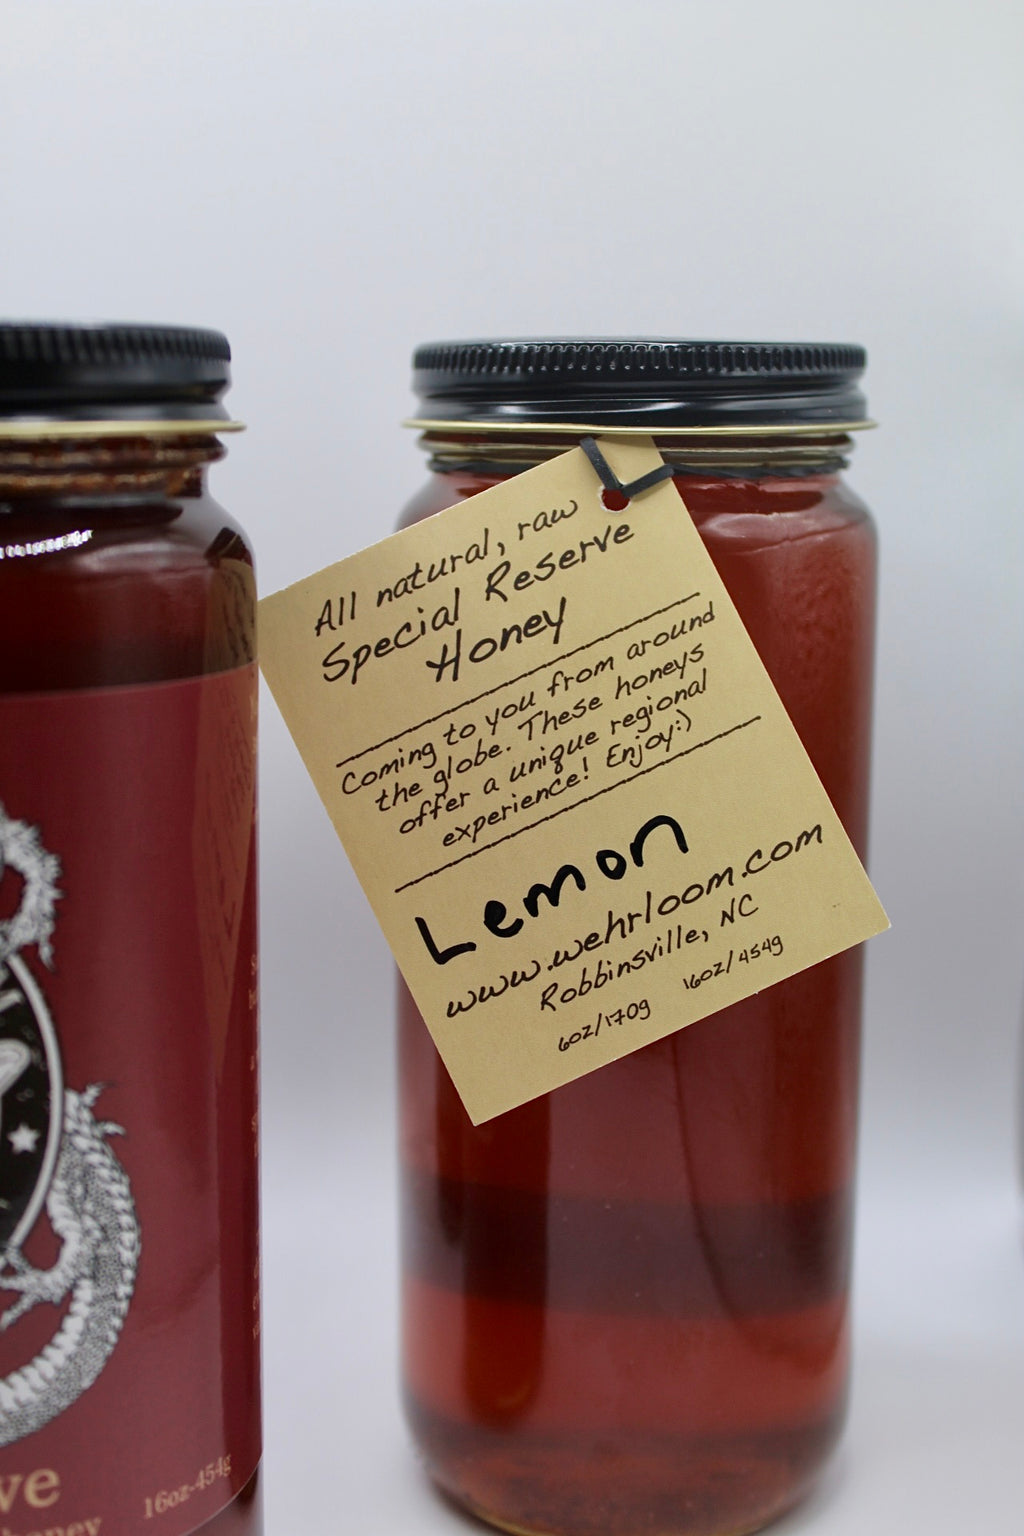 All natural, raw
Special Reserve
Honey
Coming to you from around
the globe. These honeys
offer a unique regional
experience! Enjoy:)
Lemon
www.wehrloom.com
Robbinsville, NC
6oz/170g 16oz/454g
ve
16oz-454g
honey